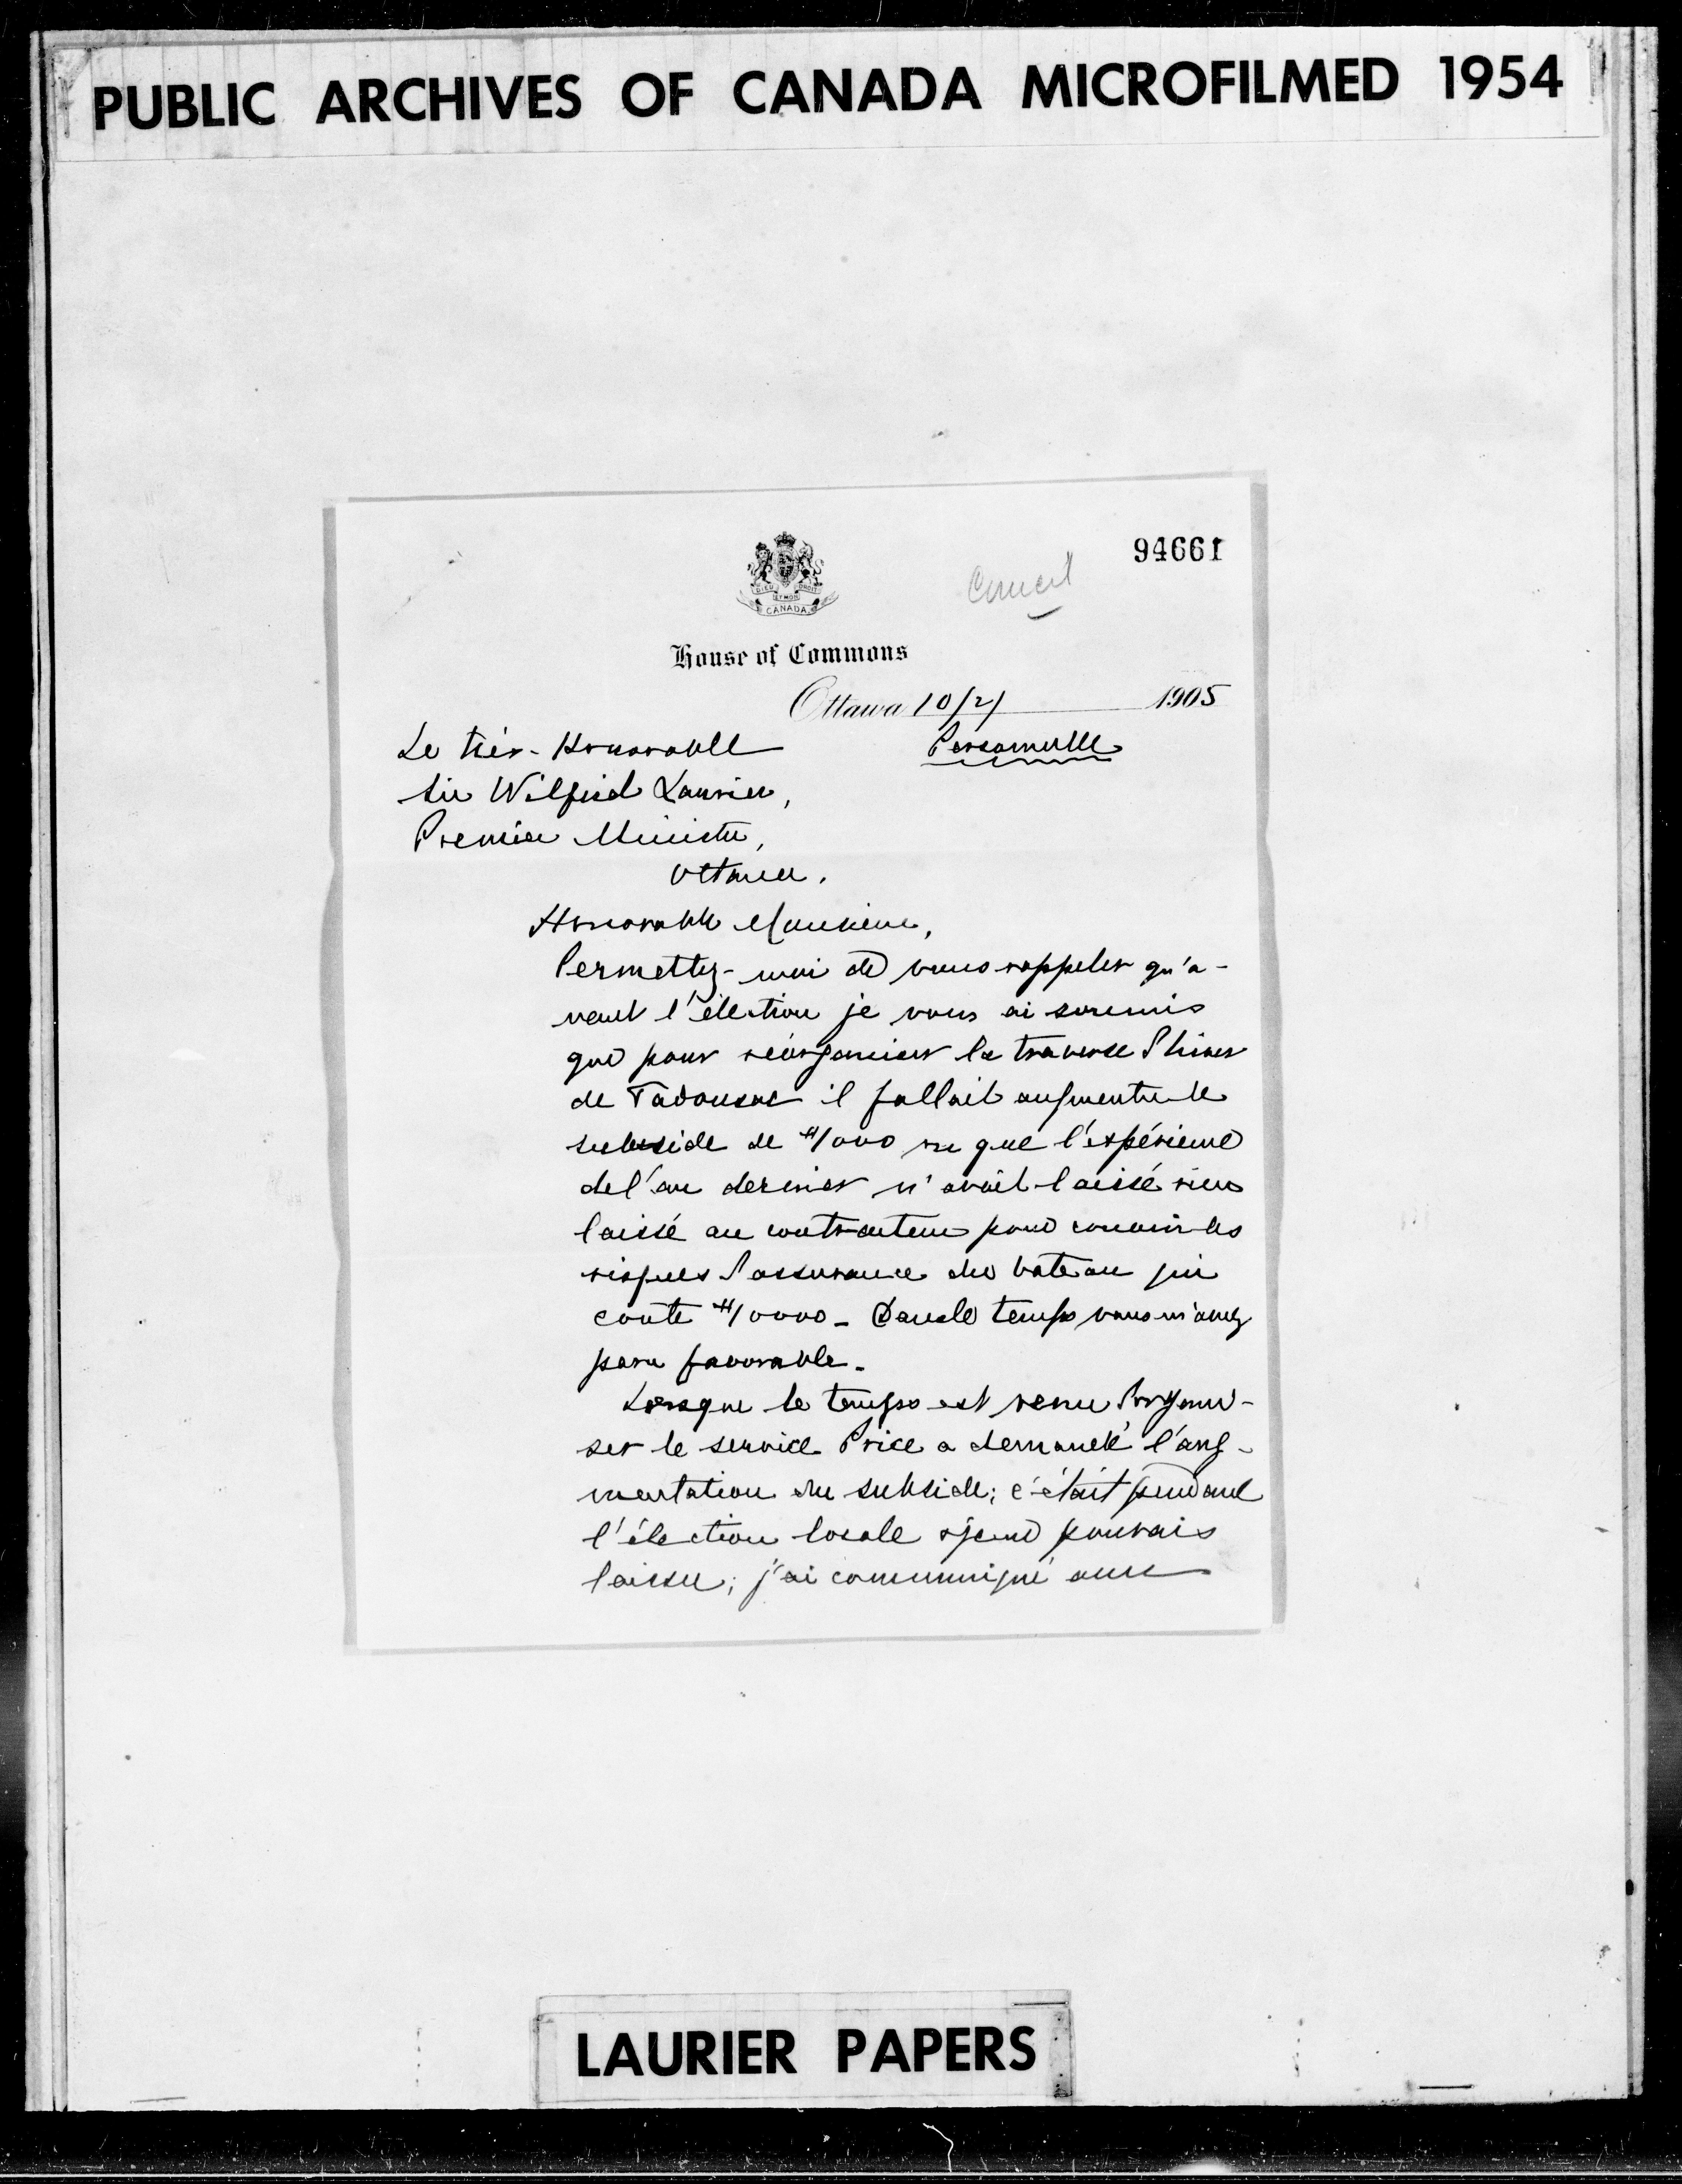 PUBLIC ARCHIVES OF CANADA MICROFILMED 1954
94661
DIEU ET MON DROIT
CANADA
House of Commons
Ottawa 10/2/ 1905
Le très-Honorable
Personnelle
Sir Wilfrid Laurier,
Premier Ministre,
Ottawa.
Honorable Monsieur,
Permettez-moi de vous rappeler qu'a-
vant l'élection je vous ai soumis
que pour réorganiser la traverse d'hiver
de Tadousac il fallait augmenter le
subside de $1000 vu que l'expérience
de l'an dernier n'avait laissé rien
laissé au contracteur pour couvrir les
risques d'assurance du bateau qui
coute $10000 - Dans le temps vous m'avez
paru favorable.
Lorsque le temps est venu d'organi-
ser le service Price a demandé l'aug-
mentation du subside; c'était pendant
l'élection locale & je ne pouvais
laisser; j'ai communiqué avec
LAURIER PAPERS